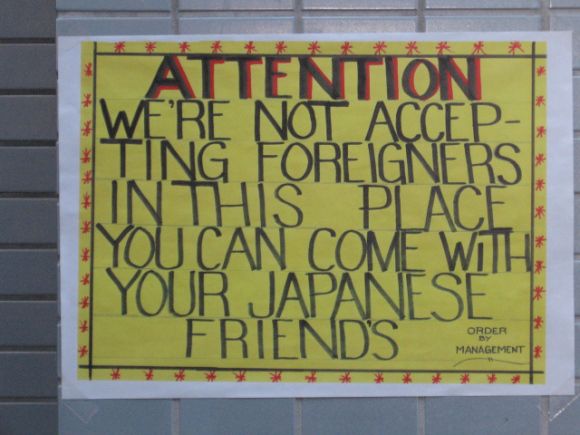 ATTENTION
WE'RE NOT ACCEP-
TING FOREIGNERS
IN THIS PLACE
YOU CAN COME WITH
YOUR JAPANESE
FRIEND'S
ORDER
BY
MANAGEMENT